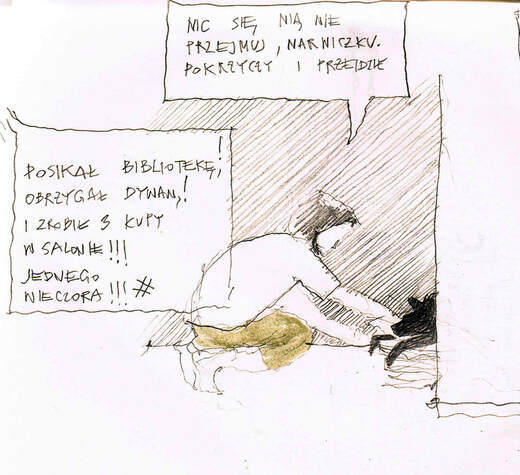 NIC SIĘ NIĄ NIE
PRZEJMUJ, NARWICZKU.
POKRZYCZY I PRZEJDZIE
POSIKAŁ BIBLIOTEKĘ,!
OBRZYGAŁ DYWAN,!
I ZROBIŁ 3 KUPY
W SALONIE!!!
JEDNEGO
WIECZORA!!! #